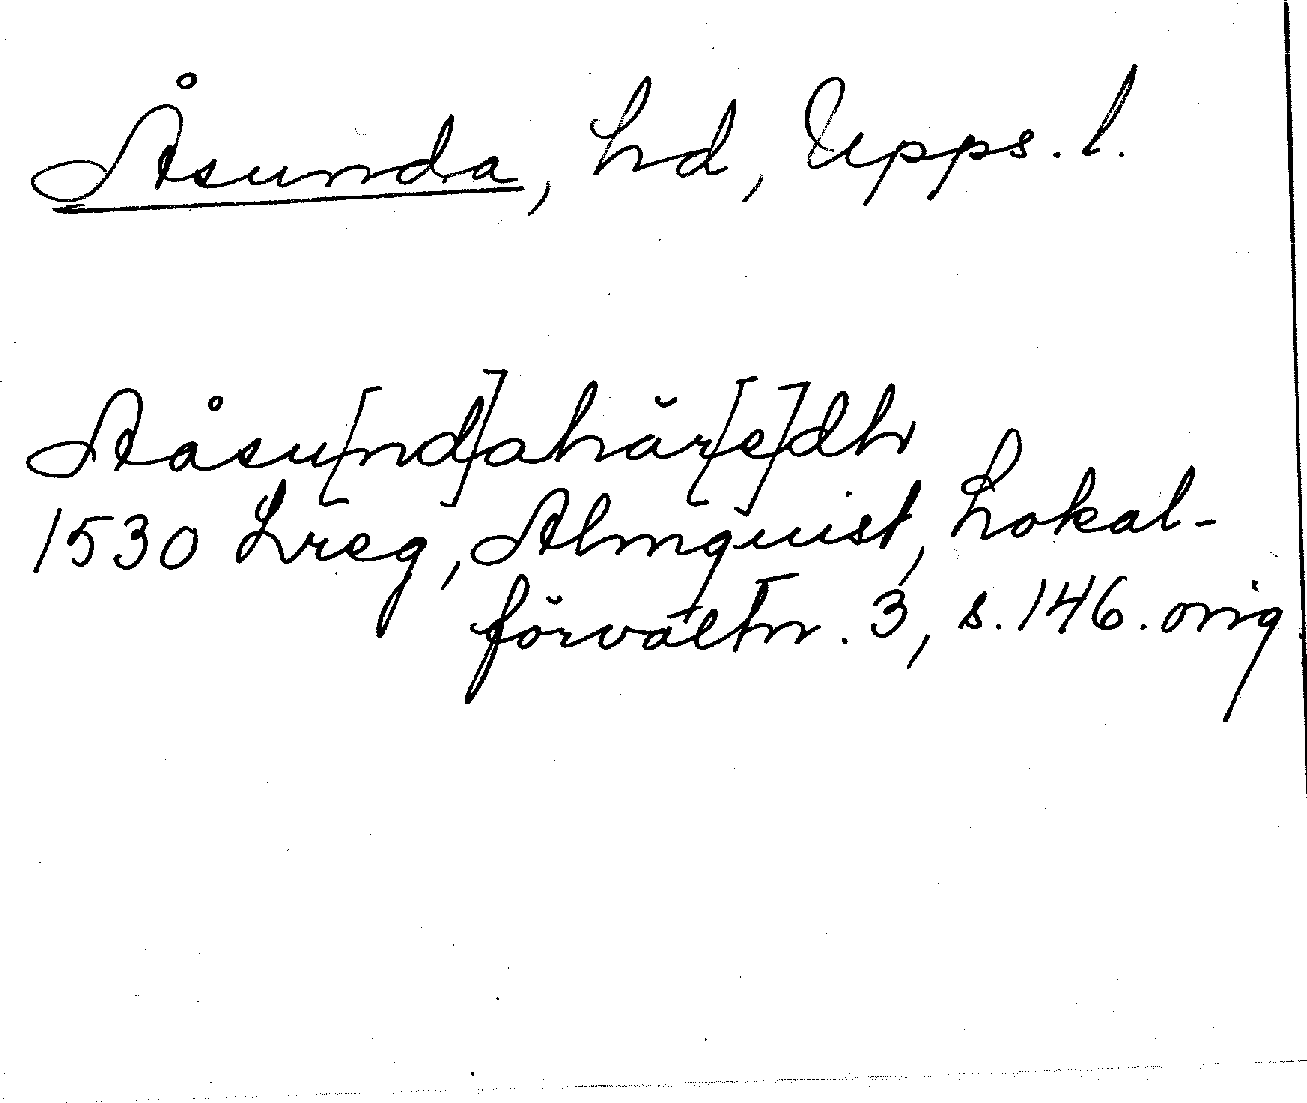 Åsunda, hd, Upps. l.
Aåsu[nd]ahär[e]dh
1530 Lreg, Almquist, Lokal-
förvaltn. 3, s. 146. orig